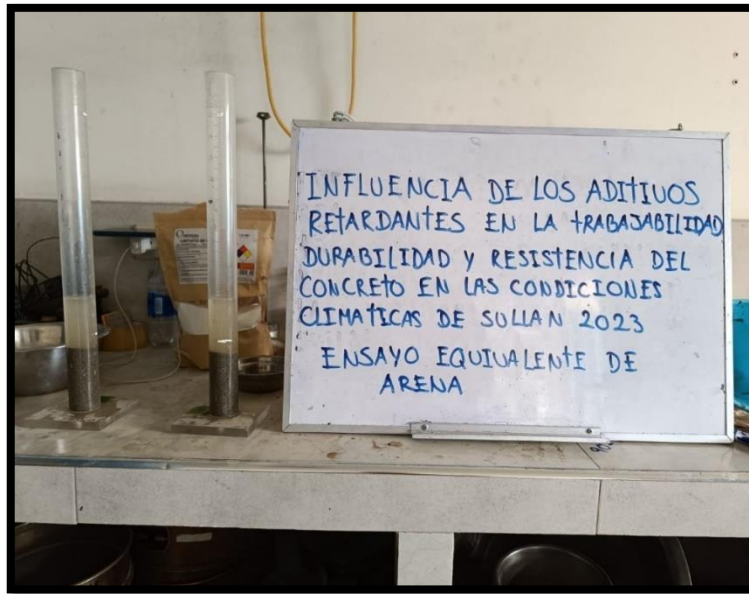 INFLUENCIA DE LOS ADITIVOS
RETARDANTES EN LA TRABAJABILIDAD
DURABILIDAD Y RESISTENCIA DEL
CONCRETO EN LAS CONDICIONES
CLIMATICAS DE SULLAN 2023
ENSAYO EQUIVALENTE DE
ARENA